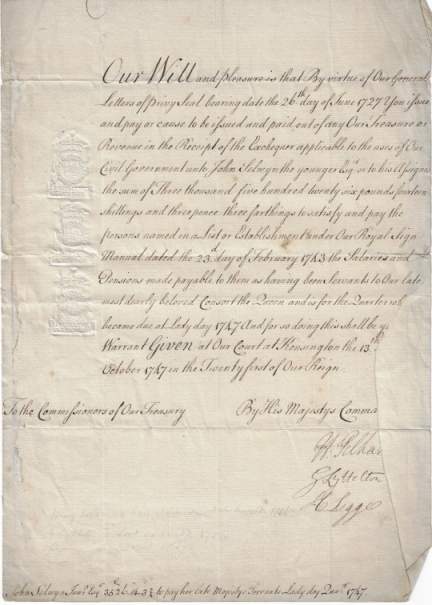 Our Will and pleasure is that By virtue of Our General
Letters of Privy Seal bearing date the 26th day of June 1727 You issue
and pay or cause to be issued and paid out of any Our Treasure or
Revenue in the Receipt of the Exchequer applicable to the uses of Our
Civil Government unto John Selwyn the younger Esqr. or to his assigns
the sum of Three thousand five hundred twenty six pounds fourteen
shillings and three pence three farthings to satisfy and pay the
persons named in a List or Establishment under Our Royal Sign
Manual dated the 23d day of February 1743 the Salaries and
Pensions made payable to them as having been Servants to Our late
most dearly beloved Consort the Queen and is for the Quarter wch
became due at Lady day 1747 And for so doing this shall be yr
Warrant Given at Our Court at Kensington the 13th
October 1747 in the Twenty first of Our Reign
To the Commissioners of Our Treasury
By His Majestys Comma
H Pelham
G Lyttelton
H Legge
John Selwyn Junr. Esqr. 3526. 14. 3¾ to pay her late Majestys Servants Lady day Quarr. 1747.